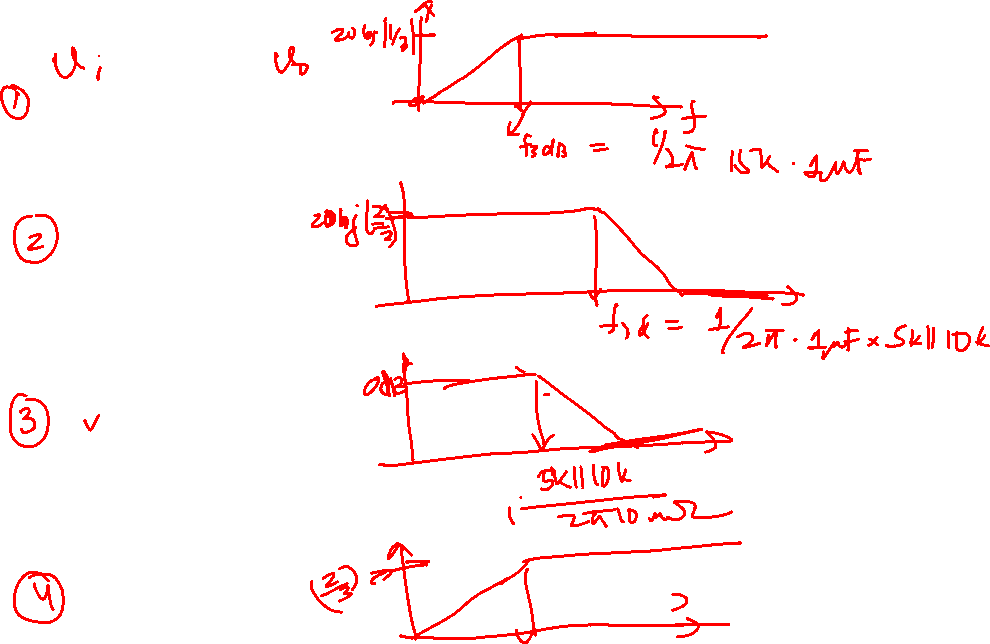 20 log |1/3|
Ui Vo
1
f
f3dB = 1/2π 15K · 1μF
2 20log(2/3)
f3d = 1/2π · 1μF × 5k||10k
3 v 0dB
5k||10k
2π10
4 (2/3)